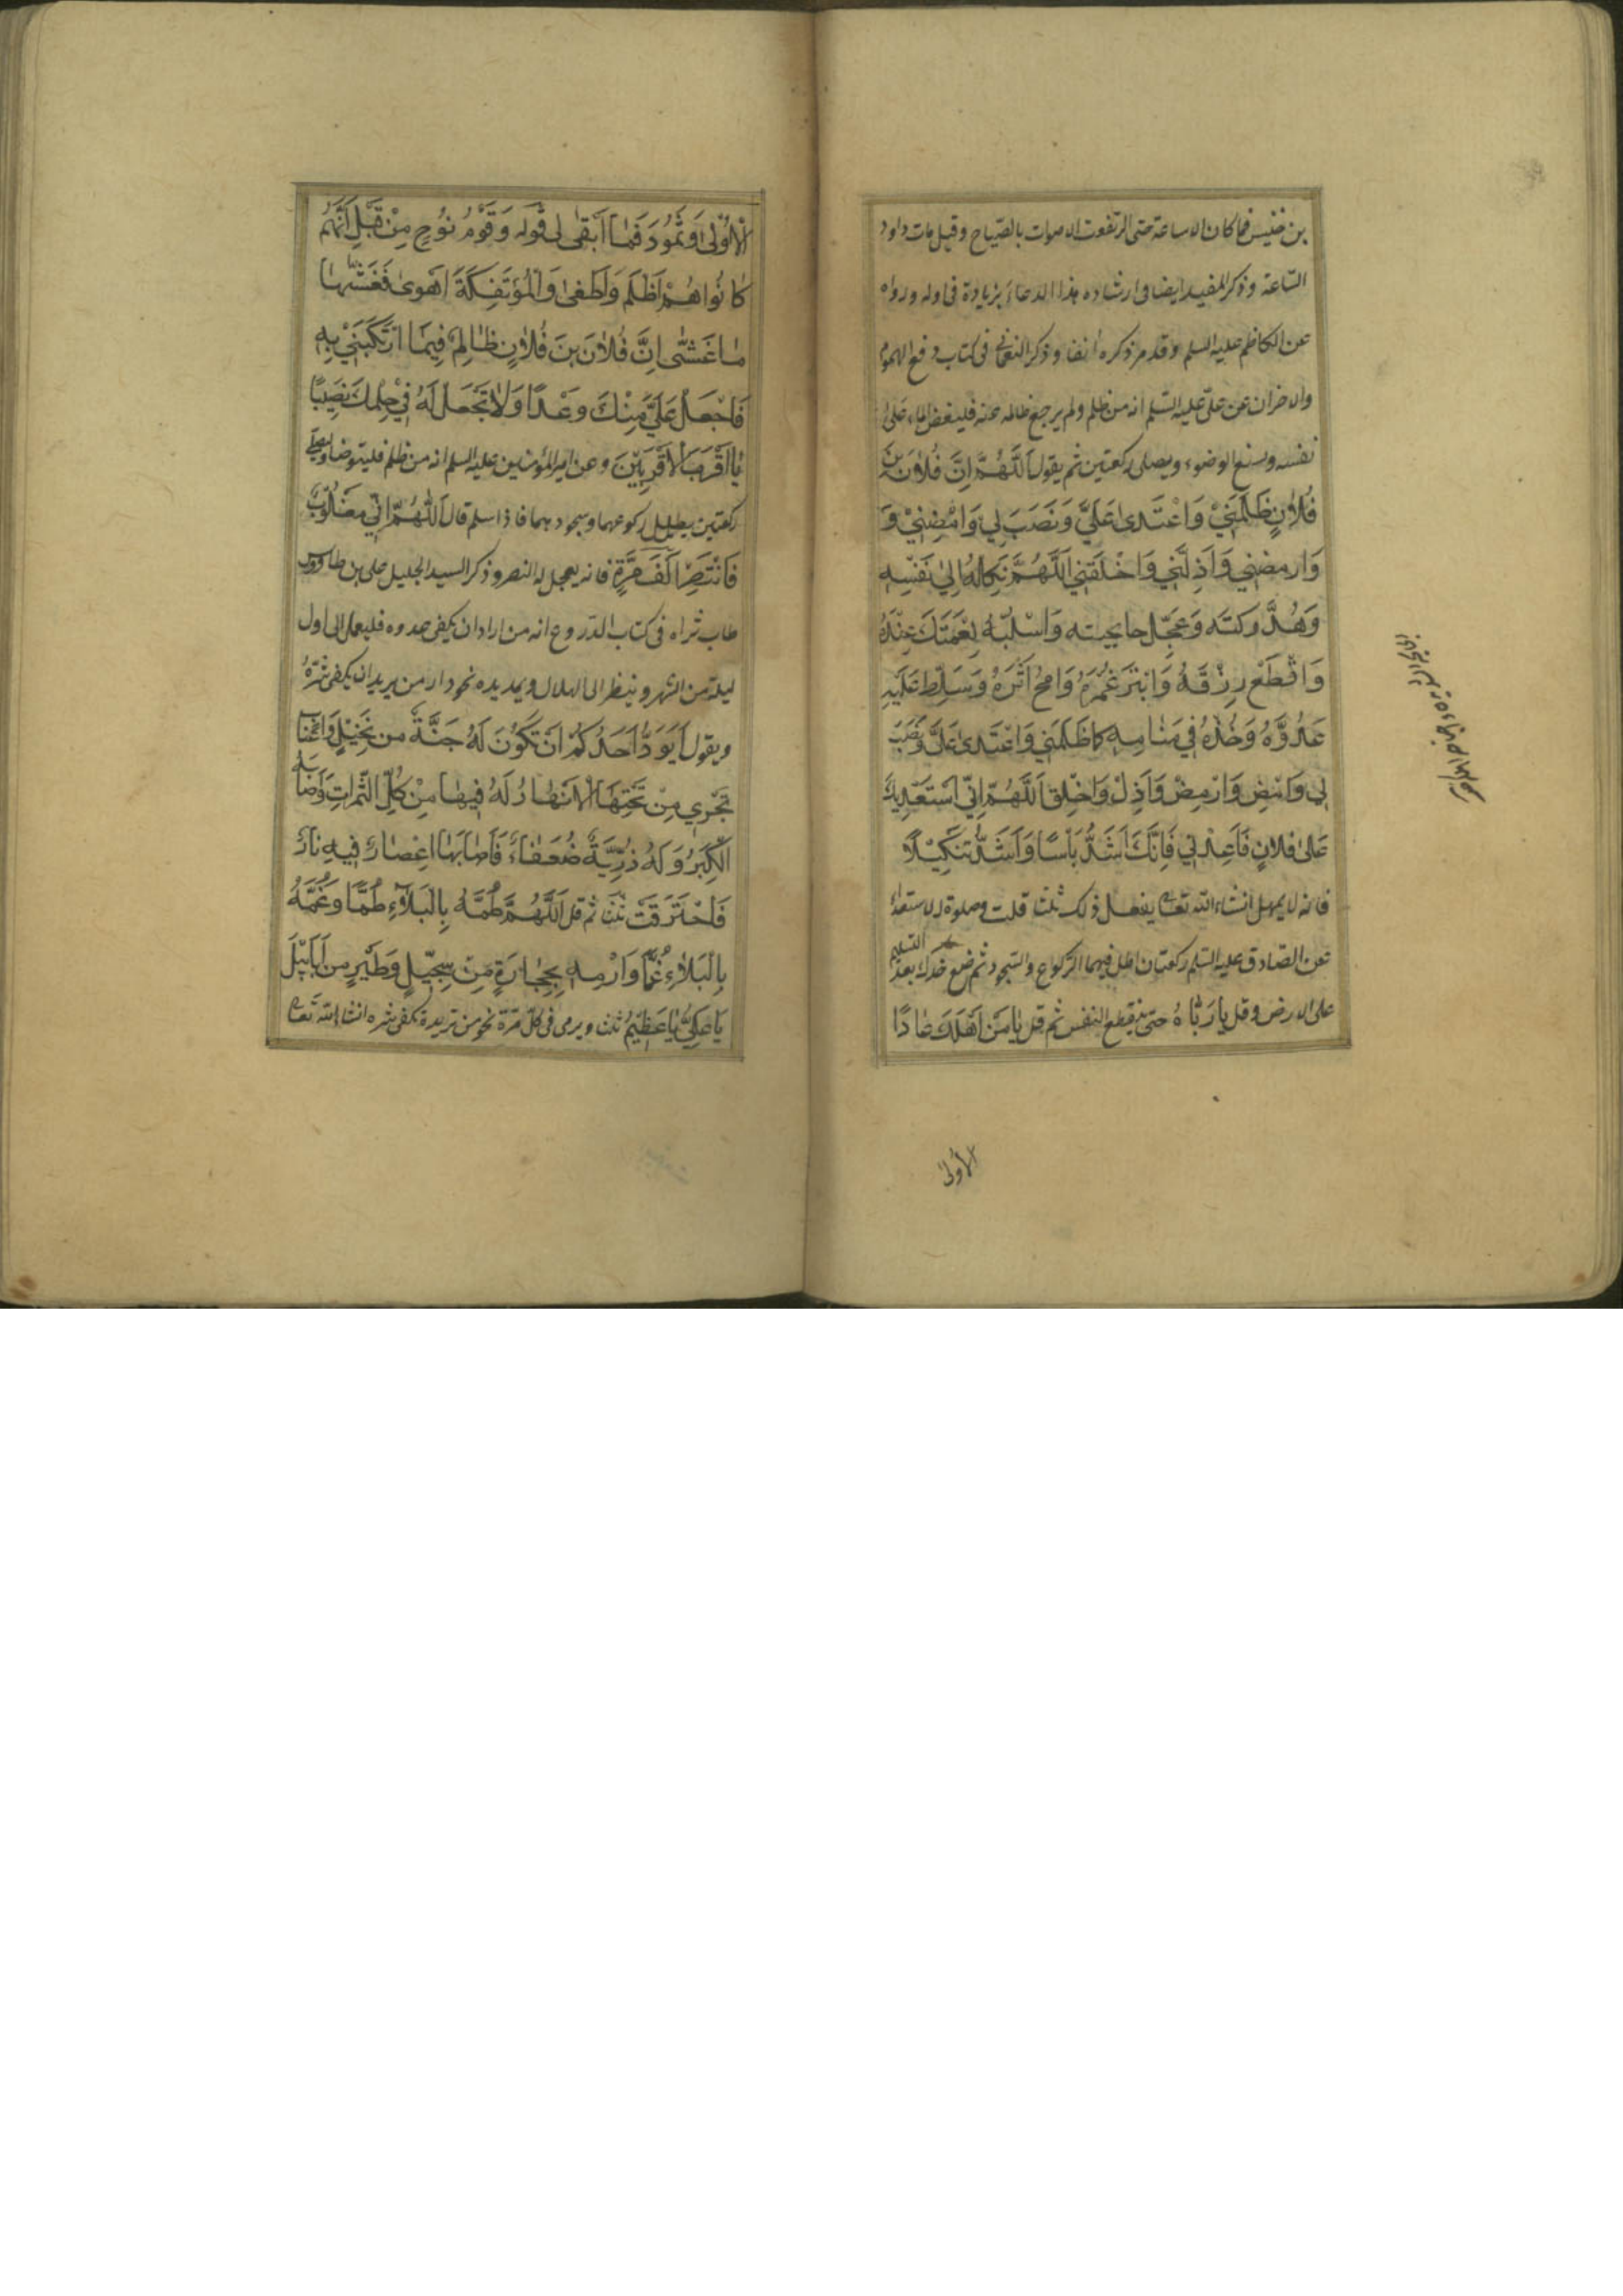 بن خنيس فما كان الا ساعة حتى ارتفعت الاصوات بالصّياح وقيل مات داود
السّاعة وذكر المفيد ايضا فى ارشاده هذا الدعاء بزيادة فى اوله ورواه
عن الكاظم عليه السلم وقد مر ذكره انفا وذكر النعمانى فى كتاب دفع الهموم
والاحزان عن علىّ عليه السّلم انه من ظلم ولم يرجع ظالمه عنه فليفض الماء عَلى
نفسه ويسبغ الوضوء ويصلى ركعتين ثم يقول اَللّهُمَّ اِنَّ فُلاٰنَ بْنَ
فُلاٰنٍ ظَلَمَنِيْ وَاعْتَدىٰ عَلَيَّ وَنَصَبَ لِي وَامَضَنِيْ وَ
وَارمضَنِي وَاَذِلَّنِي وَاَخْلَقَنِي اَللّهُمَّ فَكِلْهُ اِلىٰ نَفْسِهِ
وَهُدَّ رُكنَه وَعَجِّل جايحته وَاسْلُبْهُ نِعْمَتَكَ عِنْدَهُ
وَاقْطَعْ رِزْقَهُ وَابْتُرْ عُمْرَهُ وَامحُ اَثَرَهُ وَسَلِّط عَلَيْهِ
عَدُوَّهُ وَخُذْهُ فِي مَنامِهِ كما ظَلَمَنِي وَاعْتَدىٰ عَلَيَّ وَنَصَبَ
لِي وَامَضَ وَارْمَضَ وَاَذِلْ وَاَخْلَق اَللّهُمَّ اِنِّي اَسْتَعْدِيكَ
عَلىٰ فلانٍ فَاَعِدْنِي فَاِنَّكَ اَشَدُّ بَأسًا وَاَشَدُّ تَنكِيْلًا
فانه لا يمهل انشاء الله تعالى يفعل ذلك ثلثا قلت وصلوة الاستعداء
عن الصّادق عليه السّلم ركعتان اطل فيهما الرّكوع والسّجود ثم ضع خدك بعد التسليم
على الارض وقل يا رَبّاهُ حتى ينقطع النفس ثم قل يٰا مَنْ اَهْلَكَ عٰادًا
الأولىٰ
اَلْاُوْلىٰ وَثَمُودَ فَمٰا اَبْقىٰ لى قوله وَقَوْمُ نوُحٍ مِنْ قَبْلُ اَنَّهُمْ
كٰانُوا هُمْ اَظْلَمَ وَاَطْغىٰ وَالْمُؤتَفِكَةَ اَهْوىٰ فَغَشّٰهٰا
مٰا غَشّٰى اِنَّ فُلاٰنَ بنَ فُلاٰنٍ ظٰالِمٌ فِيمٰا ارْتَكَبَنِيْ بِهِ
فَاجْعَلْ عَلَيَّ مِنْكَ وَعْدًا وَلاٰ تَجْعَلْ لَهُ فِي حِلمِكَ نَصِيبًا
يٰا اَقْرَبَ الْاَقْرَبِيْنَ وعن امير المؤمنين عليه السلم انه من ظلم فليتوضا ويصلى
ركعتين يطيل ركوعهما وسجودهما فاذا سلم قال اَللّٰهُمَّ اِنِّي مَغْلُوبٌ
فَانْتَصِرْ اَلْفَ مَرَّةٍ فانه يعجل له النصر وذكر السيد الجليل على بن طاووس
طاب ثراه فى كتاب الدّروع انه من اراد ان يكفى عدوه فليعمل الى اول
ليلة من الشهر وينظر الى الهلال ويمد يده نحو دار من يريد ان يكفى شَرّهُ
ويقول اَيَوَدُّ اَحَدُكُمْ اَنْ تَكُوْنَ لَهُ جَنَّةٌ من نَخِيْلٍ وَاَعْنٰابٍ
تَجْرِي مِنْ تَحْتِهَا الْاَنهٰارُ لَهُ فِيهٰا مِنْ كُلِّ الثَّمَراتِ وَاَصٰابَهُ
الْكِبَرُ وَلَهُ ذُرِّيَّةٌ ضُعَفٰاءُ فَاَصٰابَهٰا اِعْصٰارٌ فِيهِ نٰارٌ
فَاحْتَرَقَتْ ثلثا ثم قل اَللّهُمَّ طُمَّهُ بِالْبَلاٰءِ طَمًّا وَغُمَّهُ
بِالْبَلاٰءِ غَمًّا وَارْمِهِ بِحِجٰارَةٍ مِنْ سِجِّيْلٍ وَطَيْرٍ من اَبَابِيْلَ
يٰا عَلِيُّ يٰا عَظِيْمُ ثلثا ويرمى فى كلّ مَرّة نحو من تريده تكفى شره انشا الله تعالى